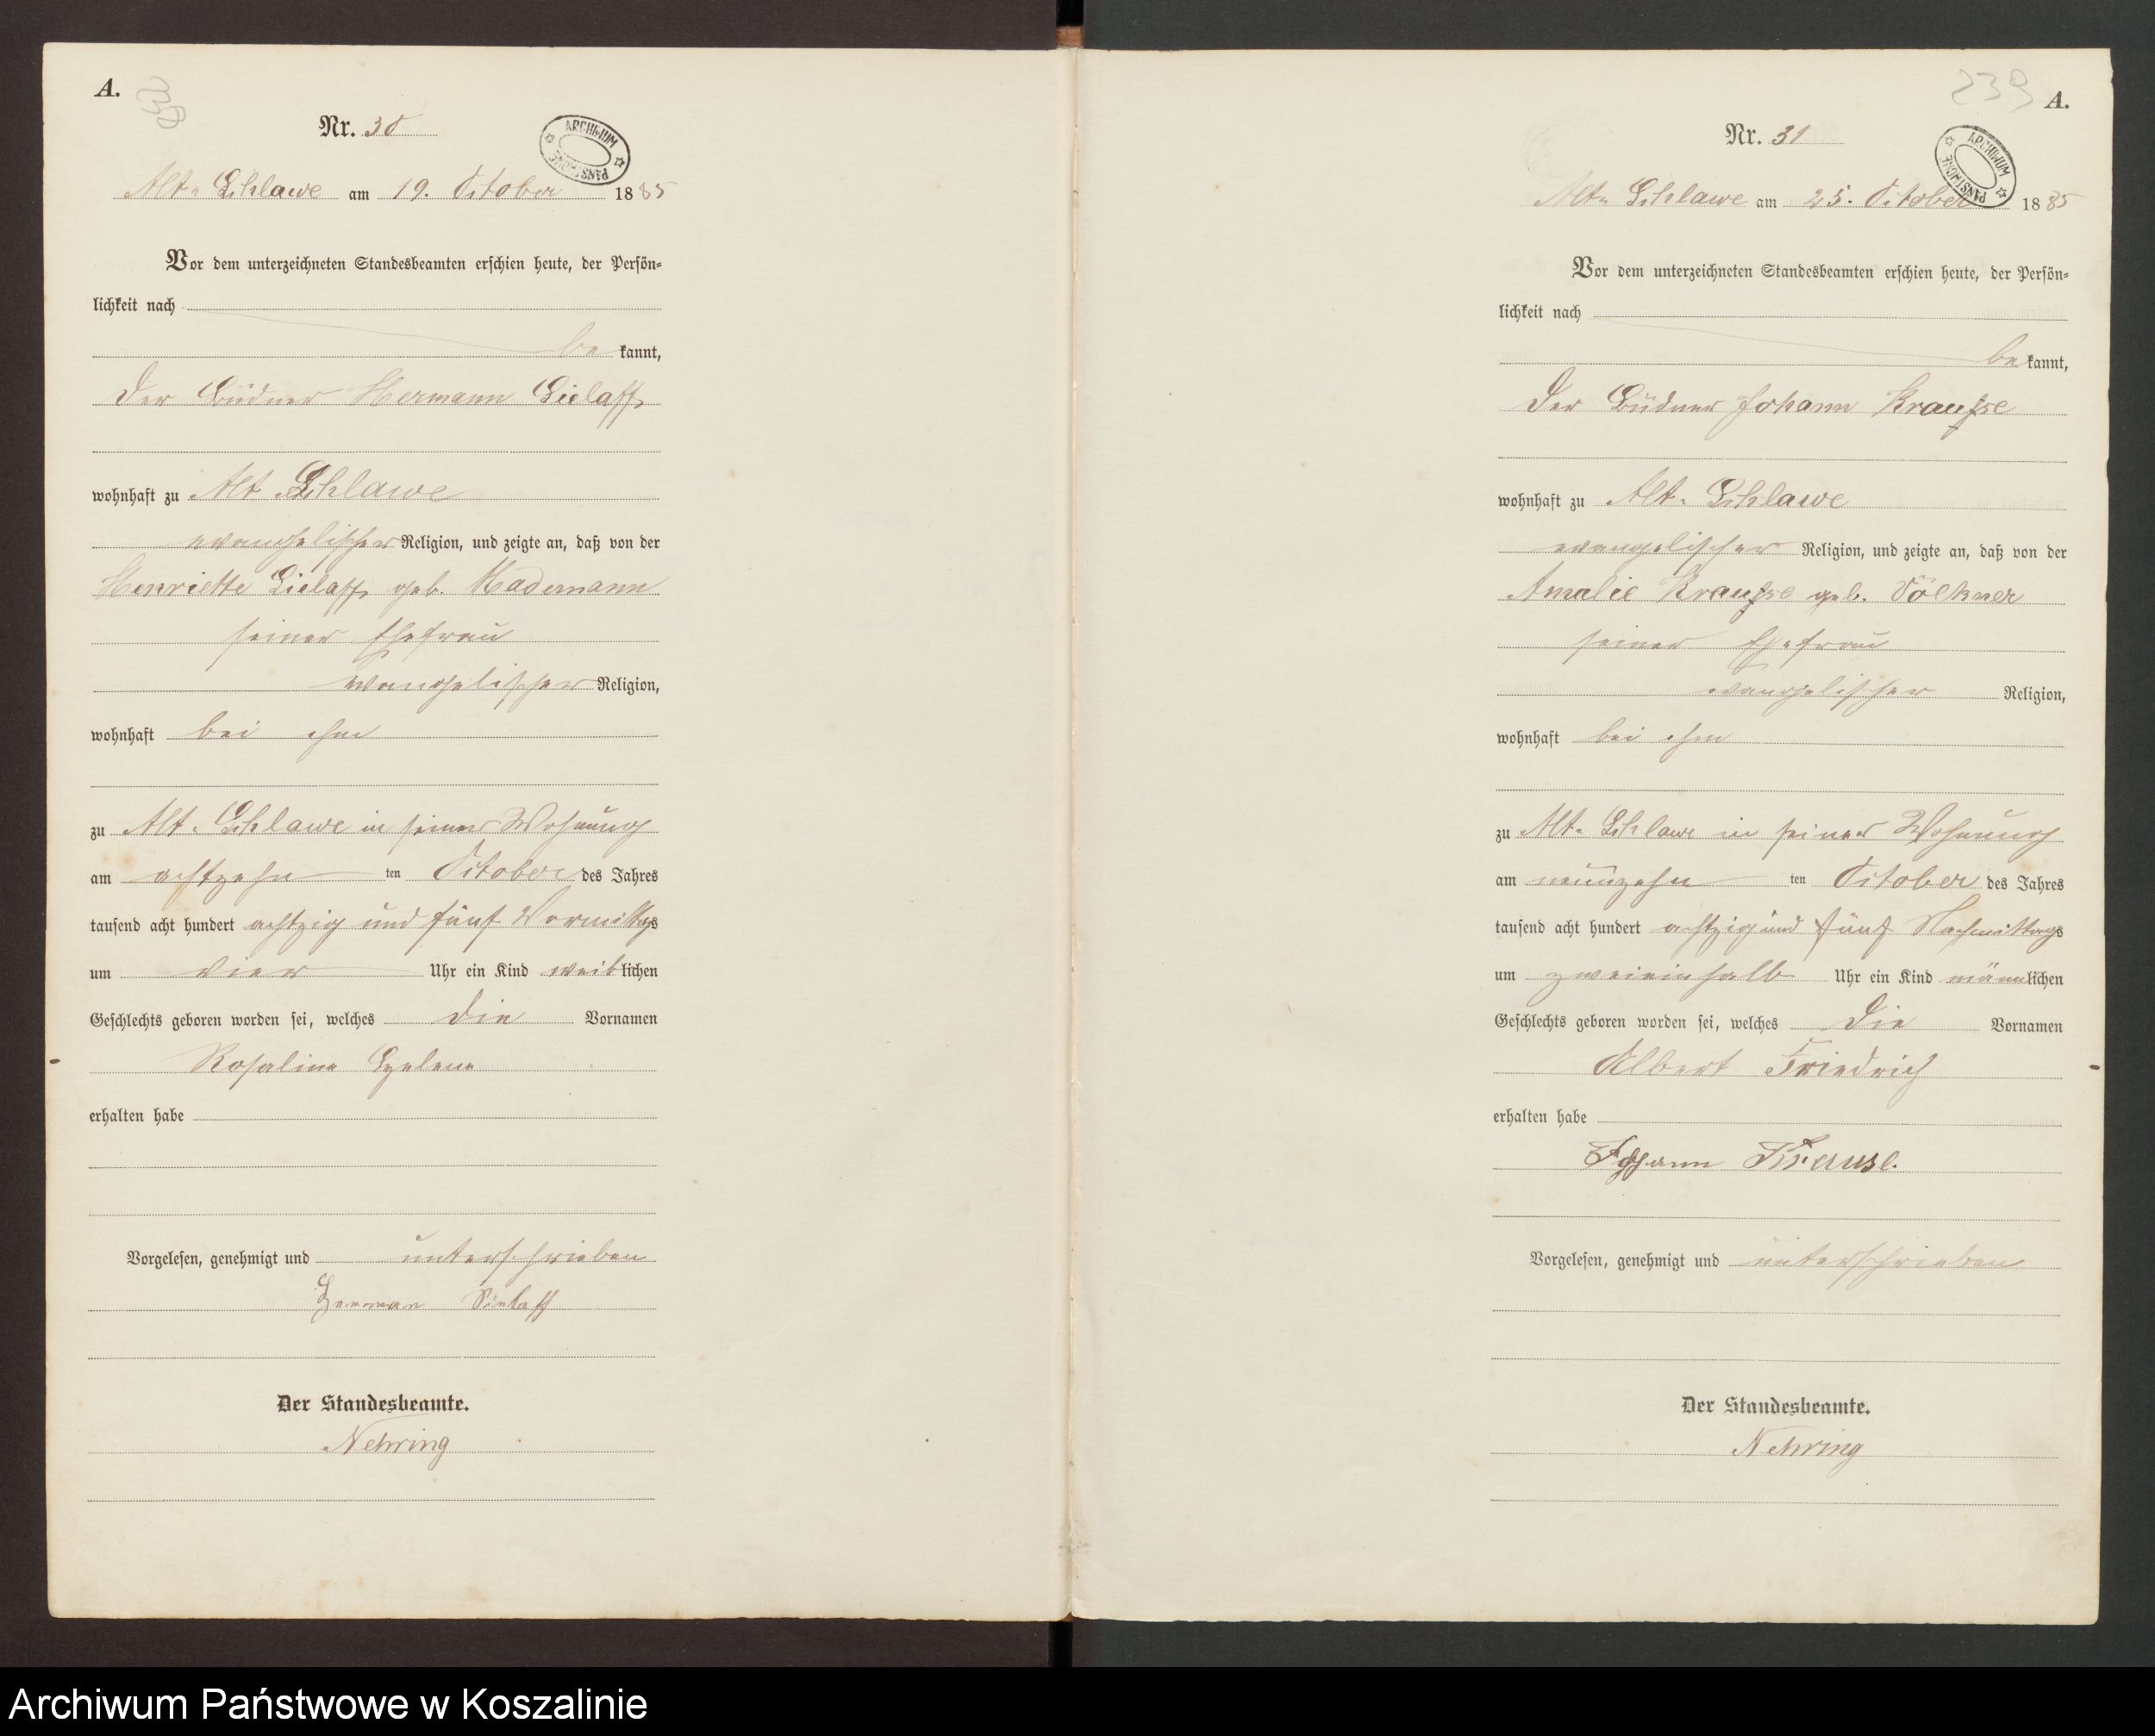 A.
Nr. 30
ARCHIWUM PAŃSTWOWE
Alt-Schlawe am 19. October 1885
Vor dem unterzeichneten Standesbeamten erschien heute, der Persön-
lichkeit nach
be kannt,
der Büdner Hermann Sielaff,
wohnhaft zu Alt Schlawe
evangelischer Religion, und zeigte an, daß von der
Henriette Sielaff, geb. Mademann
seiner Ehefrau
evangelischer Religion,
wohnhaft bei ihm
zu Alt-Schlawe in seiner Wohnung
am achtzehn ten October des Jahres
tausend acht hundert achtzig und fünf Vormittags
um vier Uhr ein Kind weiblichen
Geschlechts geboren worden sei, welches die Vornamen
Rosaline
erhalten habe
Vorgelesen, genehmigt und unterschrieben
Herman Sielaff
Der Standesbeamte.
Nehring
239
A.
Nr. 31
ARCHIWUM PAŃSTWOWE
Alt-Schlawe am 25. October 1885
Vor dem unterzeichneten Standesbeamten erschien heute, der Persön-
lichkeit nach
be kannt,
der Büdner Johann Krauße
wohnhaft zu Alt-Schlawe
evangelischer Religion, und zeigte an, daß von der
Amalie Krauße geb. Völkner
seiner Ehefrau
evangelischer Religion,
wohnhaft bei ihm
zu Alt-Schlawe in seiner Wohnung
am neunzehn ten October des Jahres
tausend acht hundert achtzig und fünf Nachmittags
um zweieinhalb Uhr ein Kind männlichen
Geschlechts geboren worden sei, welches die Vornamen
Albert Friedrich
erhalten habe
Johann Krause.
Vorgelesen, genehmigt und unterschrieben
Der Standesbeamte.
Nehring
Archiwum Państwowe w Koszalinie